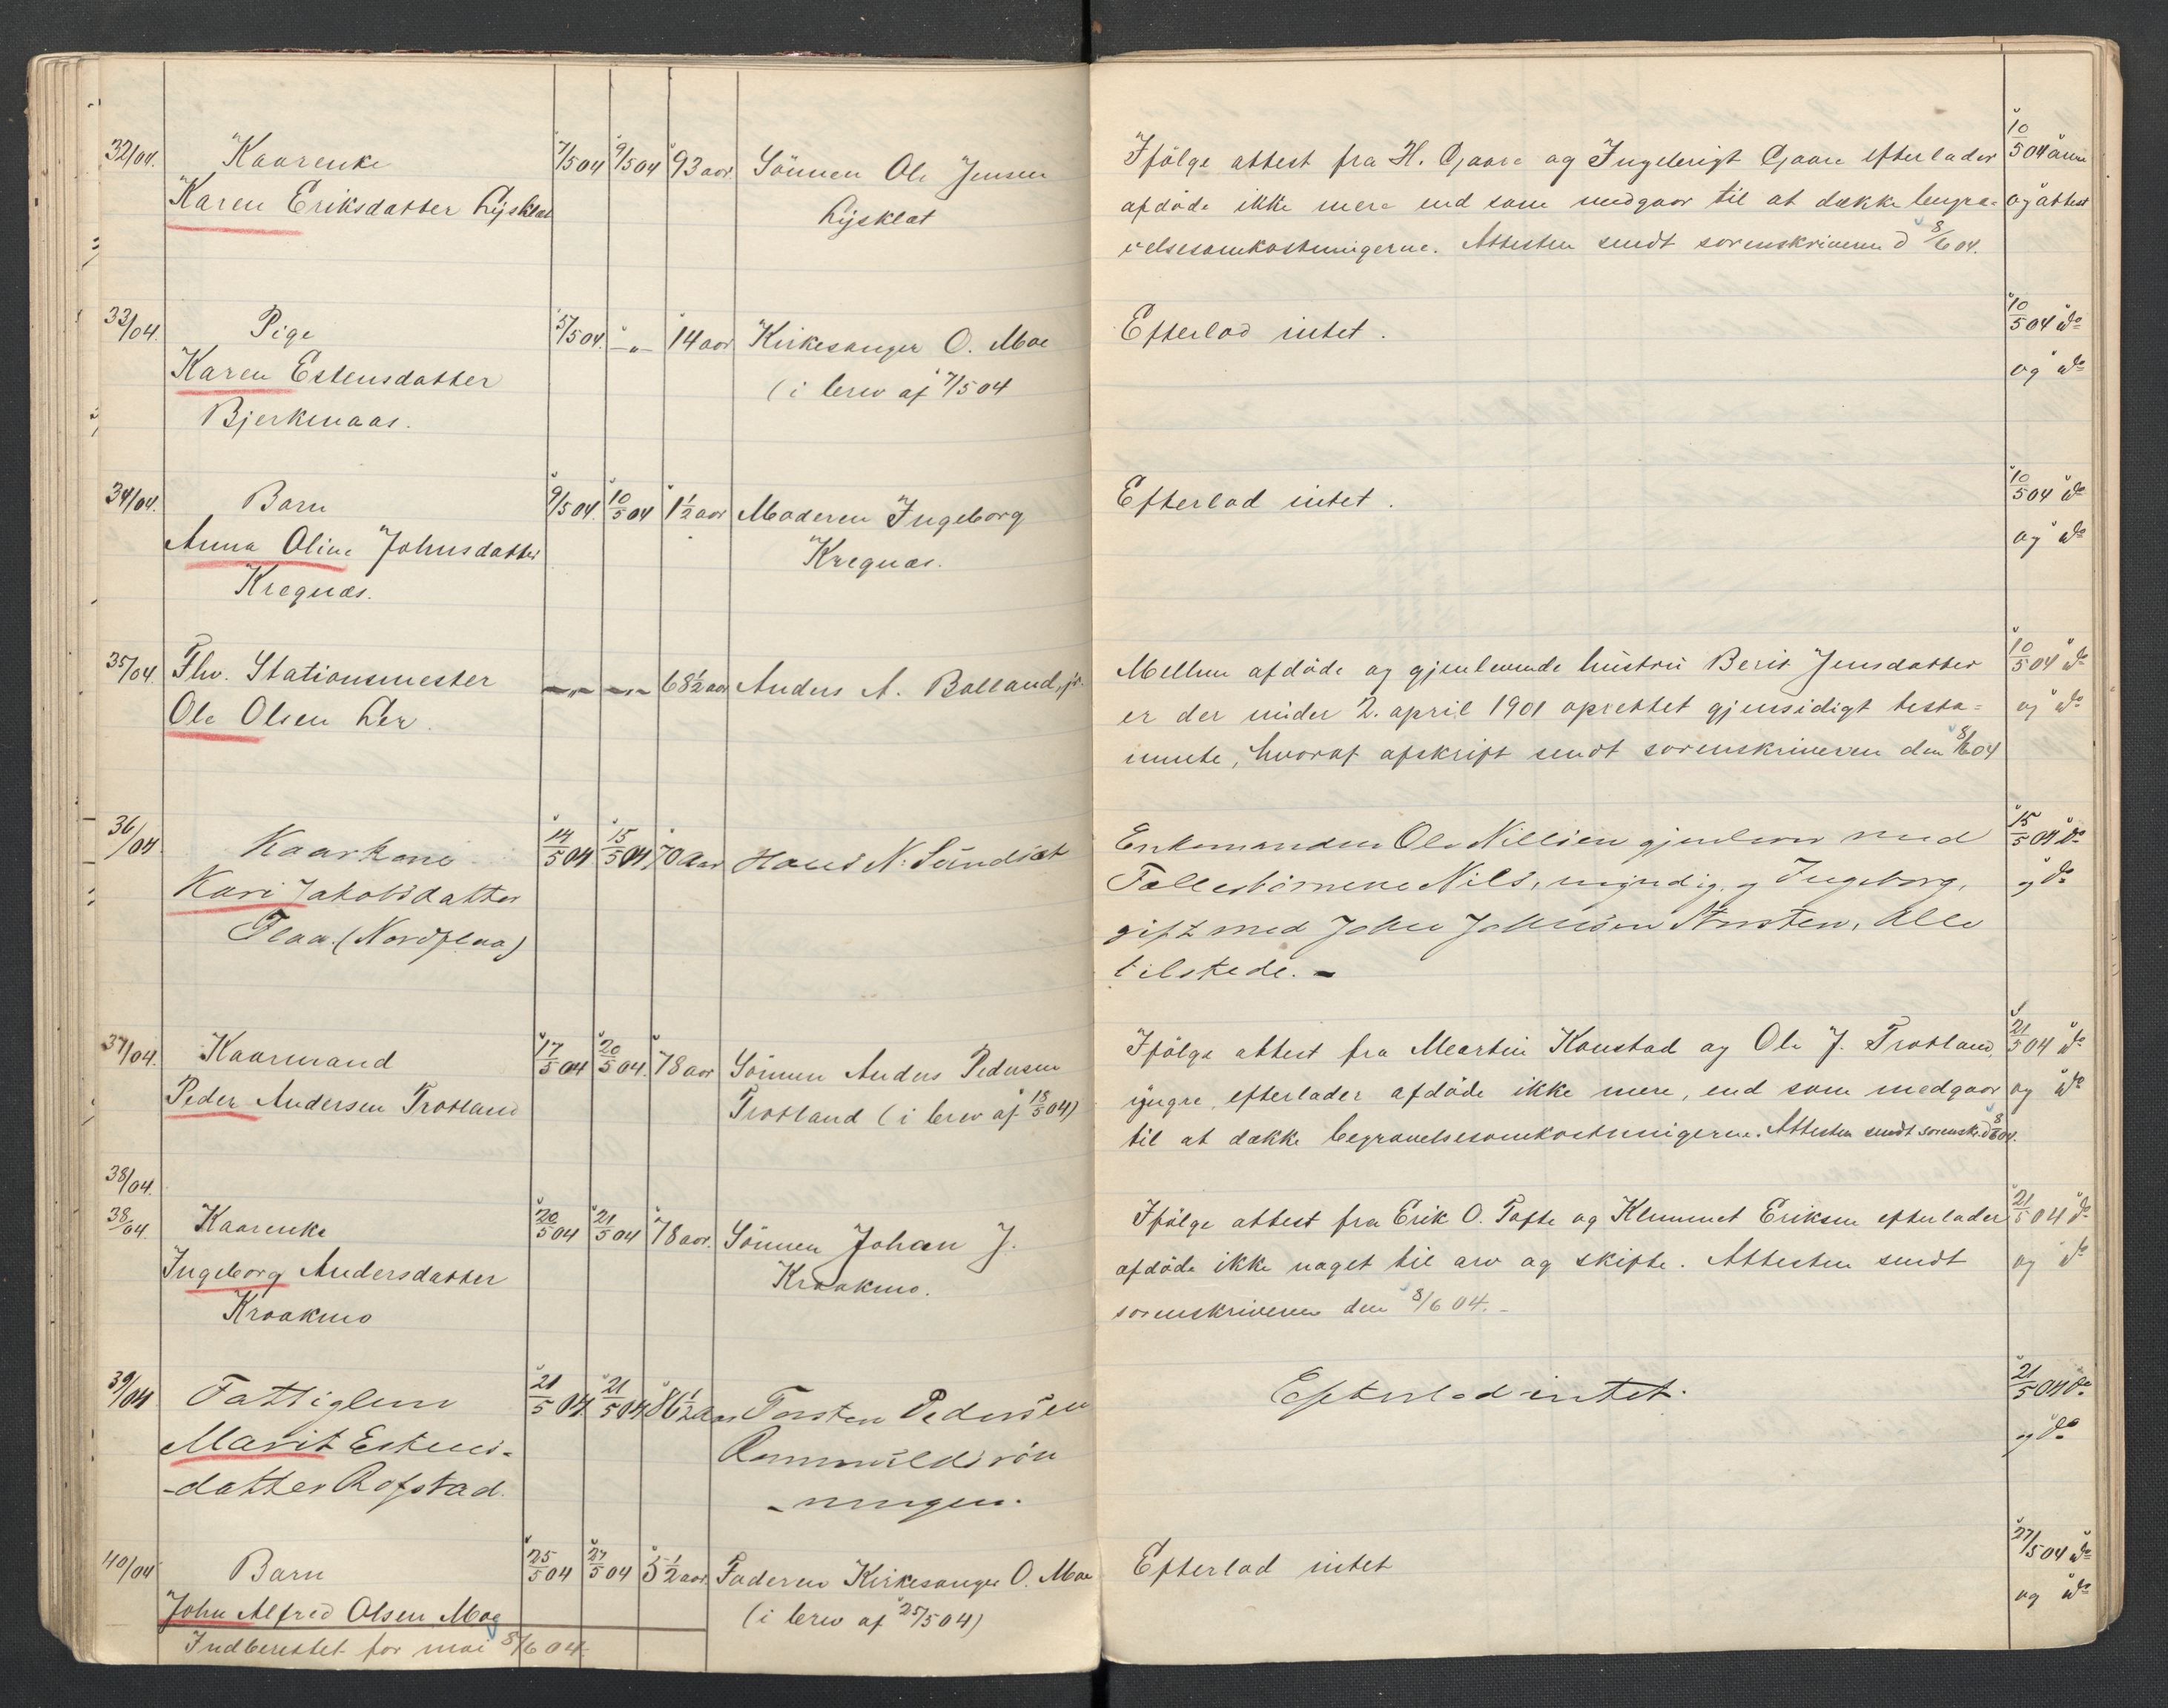 32/04. Kaarenke 7/5 04 9/5 04 93 aar. Sönnen Ole Jensen
Karen Eriksdatter Lysklæt Lysklæt
33/04. Pige 5/5 04. -„- 14 aar Kirkesanger O. Moe
Karen Estensdatter (i brev af 7/5 04
Bjerkenaas.
34/04. Barn 9/5 04. 10/5 04 1½ aar Moderen Ingeborg
Anna Oline Johnsdatter Kregnæs.
Kregnæs.
35/04. Fhv. Stationsmester -„- -„- 68½ aar Anders A. Balland, jr.
Ole Olsen Ler.
36/04 Kaarkone 14/5 04 15/5 04 70 Aar Hans N. Sundset
Kari Jakobsdatter
Flaa. (Nordflaa)
37/04. Kaarmand 17/5 04 20/5 04. 78 aar Sönnen Anders Pedersen
Peder Andersen Trotland Trotland (i brev af 18/5 04)
38/04.
38/04. Kaarenke 20/5 04 21/5 04 78 aar. Sönnen Johan J.
Ingeborg Andersdatter Kraakmo.
Kraakmo
39/04 Fattiglem 21/5 04 21/5 04 86½ Aar Torsten Pedersen
Marit Estens- Rammuldsrön
-datter Rofstad. -ningen.
40/04 Barn 25/5 04 27/5 04 5½ aar. Faderen Kirkesanger O. Moe
John Alfred Olsen Moe (i brev af 25/5 04)
Indberettet for mai 8/6 04.
Ifölge attest fra H. Gaare og Ingebrigt Gaare efterlader 10/5 04 ann
afdöde ikke mere end som medgaar til at dække begra- og attest
velsesomkostningerne. Attesten sendt sorenskriveren d 8/6 04.
Efterlod intet. 10/5 04 do
og do
Efterlod intet. 10/5 04 do
og do
Mellem afdöde og gjenlevende hustru Berit Jensdatter 10/5 04 do
er der under 2. april 1901 oprettet gjensidigt testa= og do
mente, hvoraf afskrift sendt sorenskriveren den 8/6 04
Enkemanden Ole Nillsen gjenlever med 15/5 04 do
Fællesbörnene Nils, myndig, og Ingeborg, og do
gift med John Johnsen, Alle
tilstede. -
Ifölge attest fra Martin Kaustad og Ole J. Trotland, 21/5 04 do
yngre, efterlader afdöde ikke mere, end som medgaar og do
til at dække begravelsesomkostningerne. Attesten sendt sorenskr. d 8/6 04.
Ifölge attest fra Erik O. Tofte og Klemmet Eriksen efterlader 21/5 04 do
afdöde ikke noget til arv og skifte. Attesten sendt og do
sorenskriveren den 8/6 04. -
Efterlod intet. 21/5 04 do
og do
Efterlod intet 27/5 04 do
og do